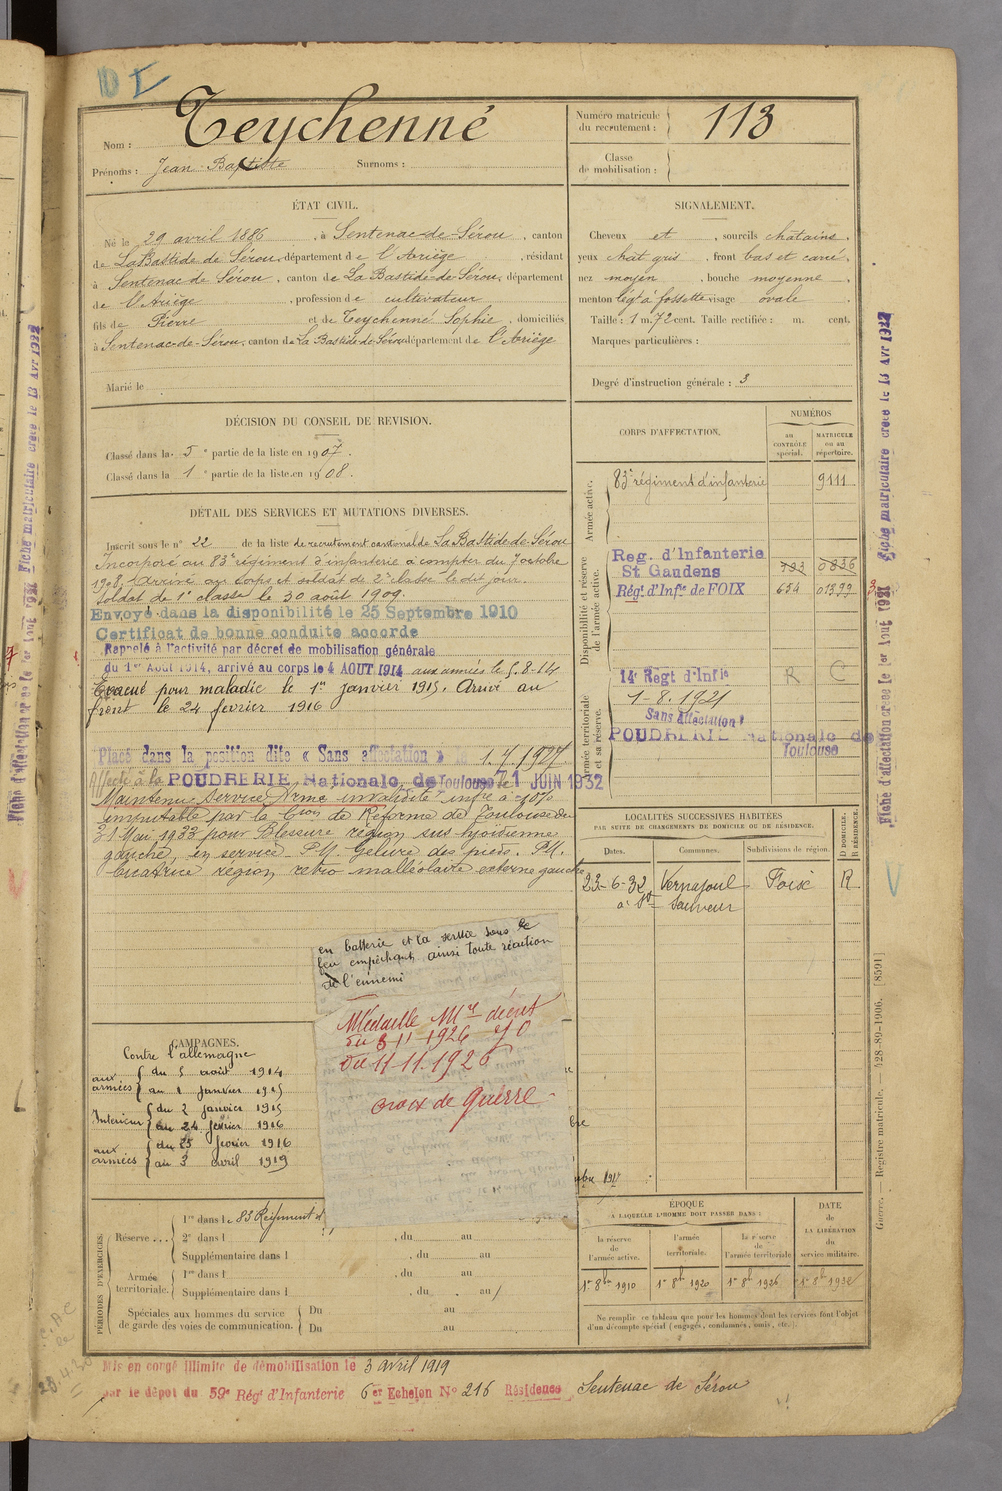 Nom : Teychenné
Prénoms : Jean Baptiste Surnoms :
Numéro matricule du recrutement : 113
Classe de mobilisation :
ÉTAT CIVIL.
Né le 29 avril 1886, à Sentenac-de-Sérou, canton
de La Bastide de Sérou, département de l'Ariège, résidant
à Sentenac de Sérou, canton de La Bastide-de-Sérou, département
de l'Ariège, profession de cultivateur
fils de Pierre et de Teychenné Sophie, domiciliés
à Sentenac-de-Sérou, canton de La Bastide-de-Sérou département de l'Ariège
Marié le
SIGNALEMENT.
Cheveux et, sourcils chatains,
yeux chat gris, front bas et carré,
nez moyen, bouche moyenne,
menton légt à fossette visage ovale
Taille : 1 m. 72 cent. Taille rectifiée : m. cent.
Marques particulières :
Degré d'instruction générale : 3
DÉCISION DU CONSEIL DE REVISION.
Classé dans la 5e partie de la liste en 1907.
Classé dans la 1e partie de la liste en 1908.
DÉTAIL DES SERVICES ET MUTATIONS DIVERSES.
Inscrit sous le n° 22 de la liste de recrutement cantonal de La Bastide-de-Sérou
Incorporé au 83e régiment d'infanterie à compter du 7 octobre
1908, Arrivé au corps et soldat de 2e classe le dit jour.
Soldat de 1e classe le 30 août 1909.
Envoyé dans la disponibilité le 25 Septembre 1910
Certificat de bonne conduite accordé
Rappelé à l'activité par décret de mobilisation générale
du 1er Août 1914, arrivé au corps le 4 AOUT 1914 aux armées le 5-8-14
Evacué pour maladie le 1er janvier 1915. Arrivé au
front le 24 février 1916
Placé dans la position dite « Sans affectation » le 1.7.1927
Affecté à la POUDRERIE Nationale de Toulouse le 1 JUIN 1932
Maintenu Service Armé invalidité infre à 10%
imputable par la Cion de Réforme de Toulouse du
31 Mai 1933 pour Blessure région sus hyoïdienne
gauche, en service. P.M. Gelure des pieds. P.M.
Cicatrice région retro malléolaire externe gauche
en batterie et la servie sous le
feu empêchant ainsi toute réaction
de l'ennemi
Médaille Mre décret
du 3 11 1926 JO
du 11.11.1926
croix de guerre
CAMPAGNES.
Contre l'allemagne
aux armées { du 5 août 1914
au 1 janvier 1915
Intérieur { du 2 janvier 1915
au 24 février 1916
aux armées { du 25 février 1916
au 3 avril 1919
CORPS D'AFFECTATION.
NUMÉROS
au CONTRÔLE spécial.
MATRICULE ou au répertoire.
Armée active.
83e régiment d'infanterie 9111
Disponibilité et réserve de l'armée active.
Reg. d'Infanterie
St Gaudens 0836
Régt d'Infie de FOIX 654 01399
Armée territoriale et sa réserve.
14e Regt d'Infie R C
1-8-1921
Sans affectation
POUDRERIE Nationale de
Toulouse
LOCALITÉS SUCCESSIVES HABITÉES
PAR SUITE DE CHANGEMENTS DE DOMICILE OU DE RÉSIDENCE.
Dates. Communes. Subdivisions de région. D DOMICILE. R RÉSIDENCE.
23-6-32 Vernajoul Foix R
à St Sauveur
ÉPOQUE
À LAQUELLE L'HOMME DOIT PASSER DANS :
DATE DE LA LIBÉRATION du service militaire.
la réserve de l'armée active.
l'armée territoriale.
la réserve de l'armée territoriale
1er 8bre 1910 1er 8bre 1920 1er 8bre 1926 1er 8bre 1932
Ne remplir ce tableau que pour les hommes dont les services font l'objet
d'un décompte spécial (engagés, condamnés, omis, etc.).
PÉRIODES D'EXERCICES.
Réserve ... 1re dans le 83 Régiment d'
, du au
2e dans l , du au
Supplémentaire dans l , du au
Armée territoriale. 1re dans l , du au
Supplémentaire dans l , du au
Spéciales aux hommes du service
de garde des voies de communication.
Du au
Du au
Mis en congé illimité de démobilisation le 3 avril 1919
par le dépôt du 59e Régt d'Infanterie 6er Echelon N° 216 Résidence Sentenac de Sérou
Fiche d'affectation créée le 1er Août 1921 Fiche matriculaire créée le 13 Avr 1922
Guerre. — Registre matricule. — 428-89-1906. [8591]
28.4.30